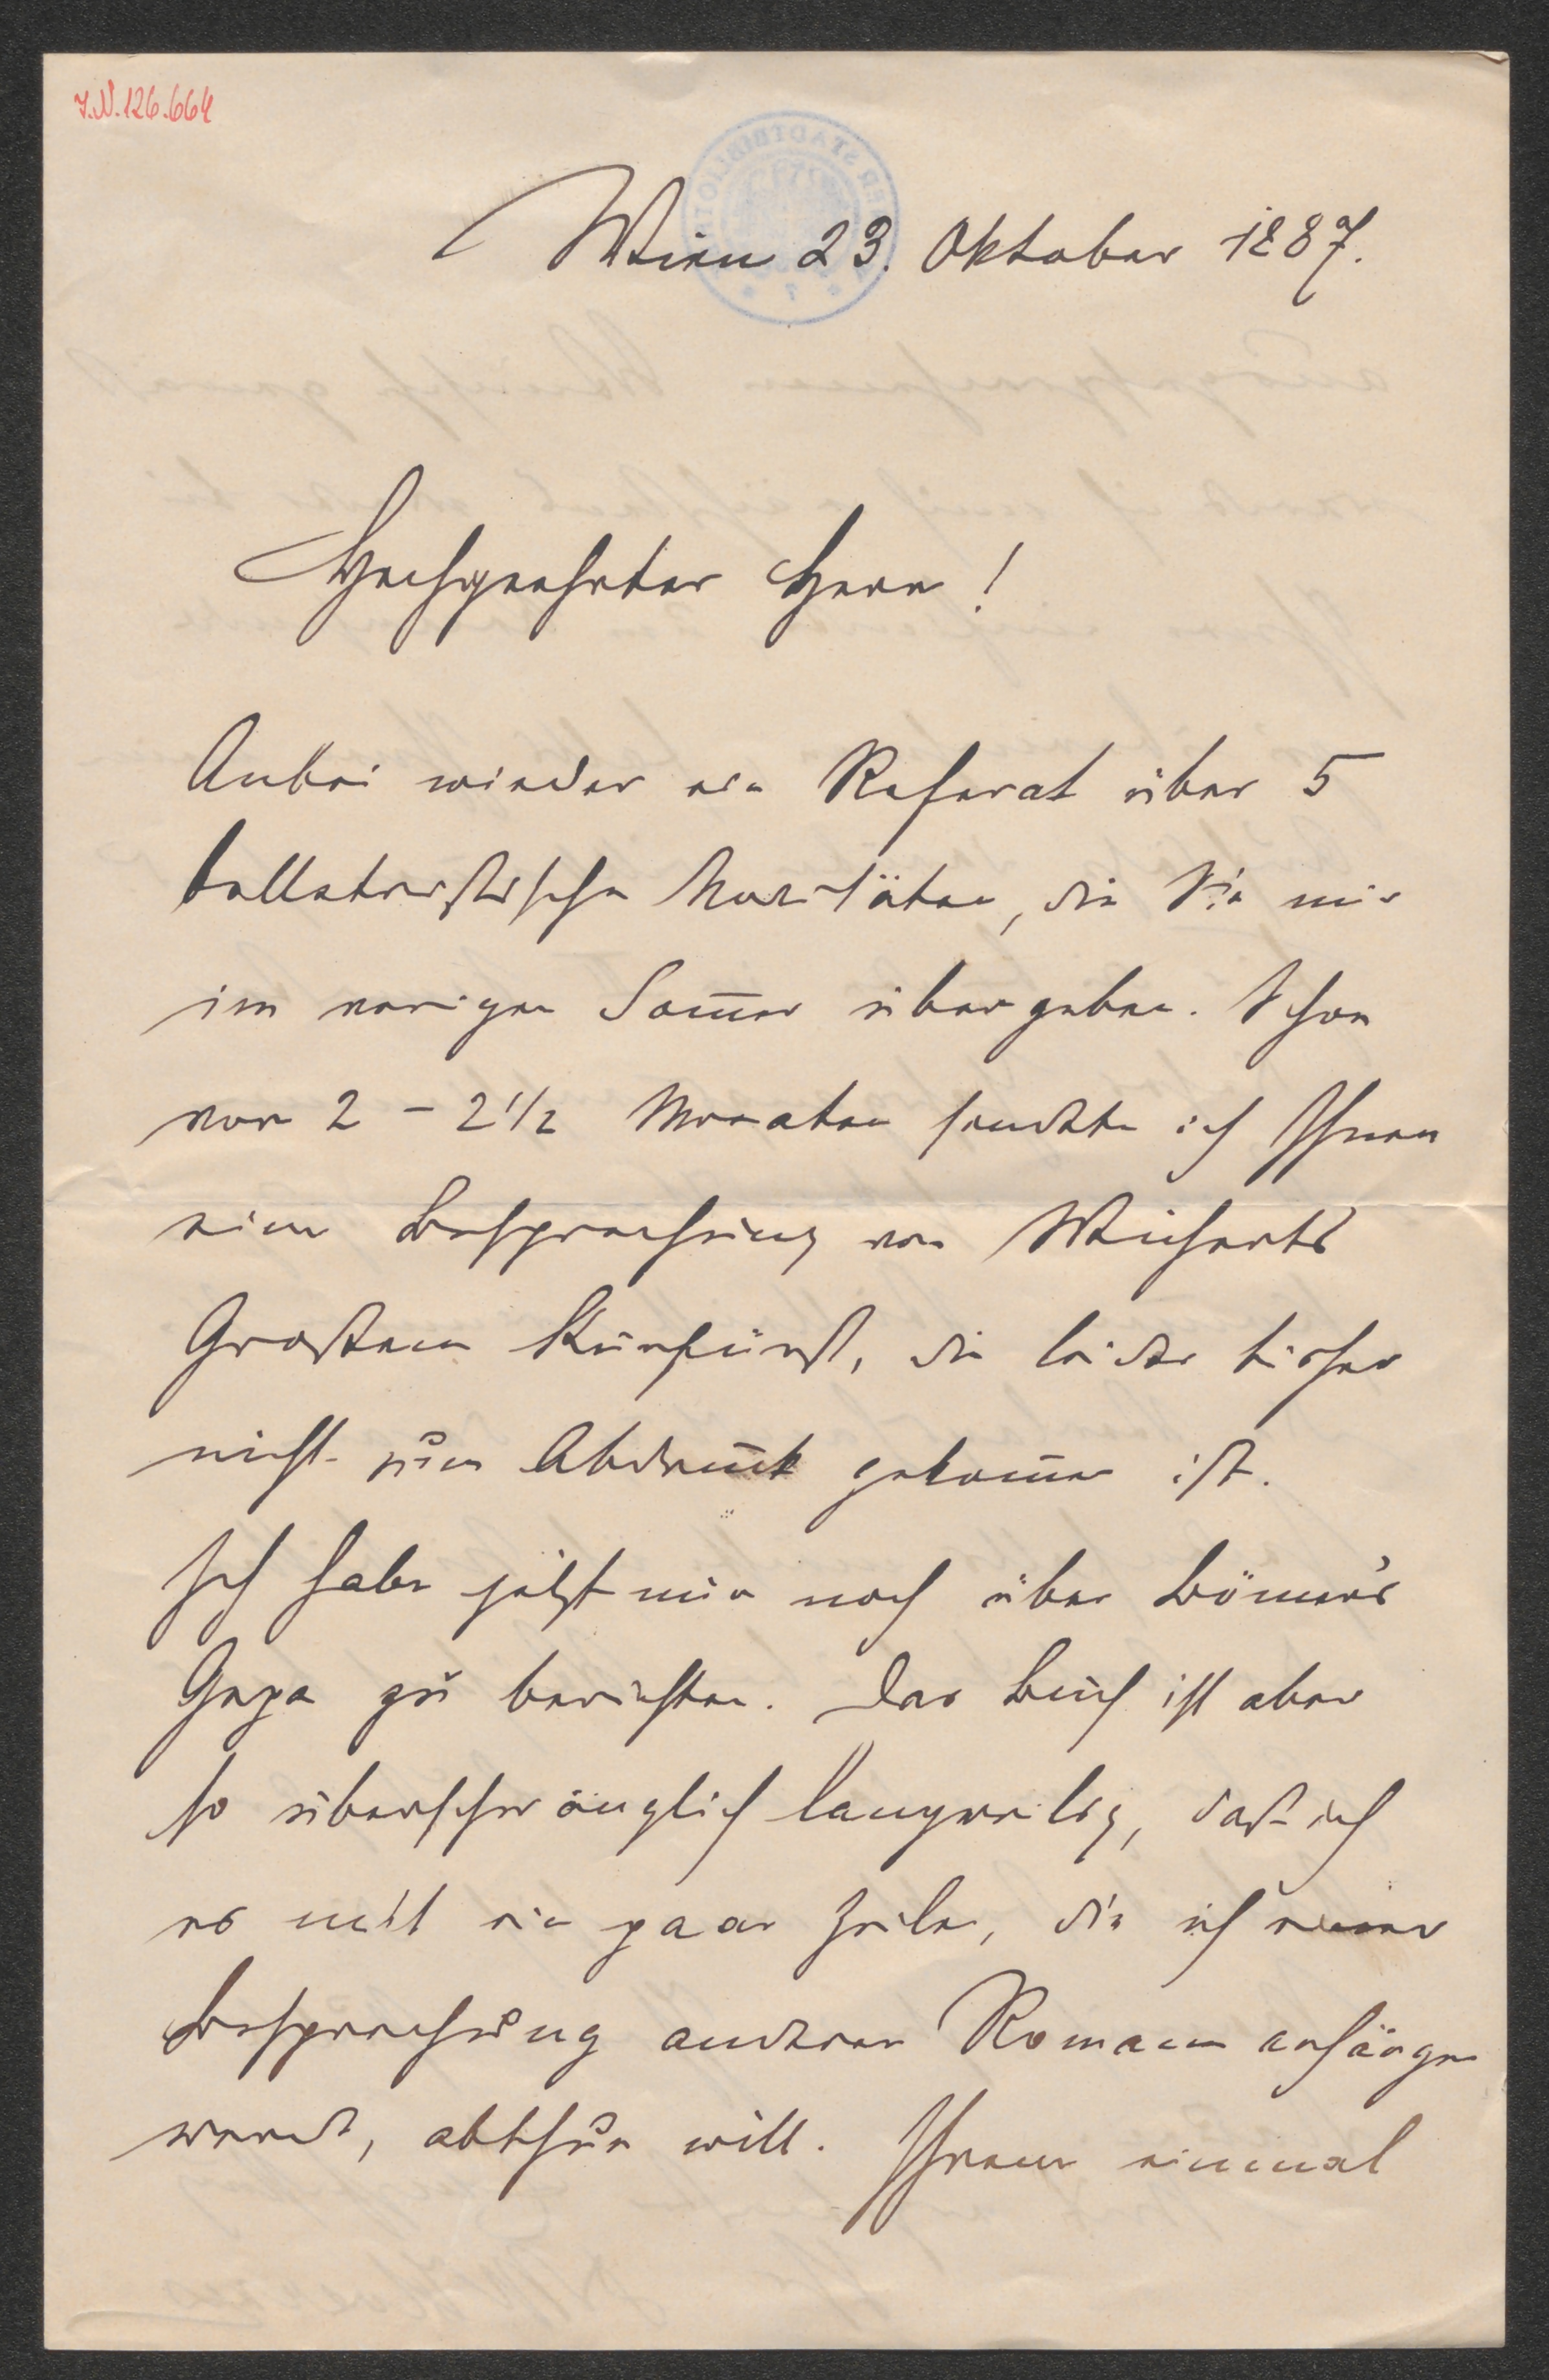 J.N. 126.664
Wien 23. Oktober 1887.
Hochgeehrter Herr!
Anbei wieder ein Referat über 5
belletristische Novitäten, die Sie mir
im vorigen Som̅er übergeben. Schon
vor 2 – 2 1/2 Monaten sandte ich Ihnen
eine Besprechung von Wicherts
Großem Kurfürst, die leider bisher
nicht zum Abdruck gekom̅en ist.
Ich habe jetzt nur noch über
zu berichten. Das Buch ist aber
so überschwänglich langweilig, daß ich
es mit ein paar Zeilen, die ich einer
Besprechung anderer Romane anhängen
werde, abthun will. Ihnen einmal